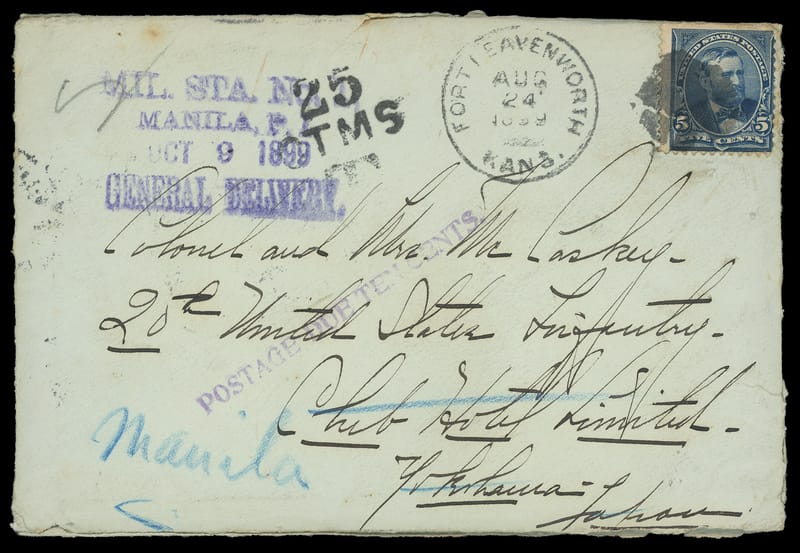 MIL. STA. No. 1
MANILA, P.
OCT 9 1899
GENERAL DELIVERY.
25
CTMS
FORT LEAVENWORTH
AUG
24
1899
KANS.
UNITED STATES POSTAGE
5 5
FIVE CENTS
Colonel and Mrs. Mc Caskey-
20th United States Infantry-
POSTAGE DUE TEN CENTS.
Club Hotel Limited-
Manila
Yokohama-
Japan